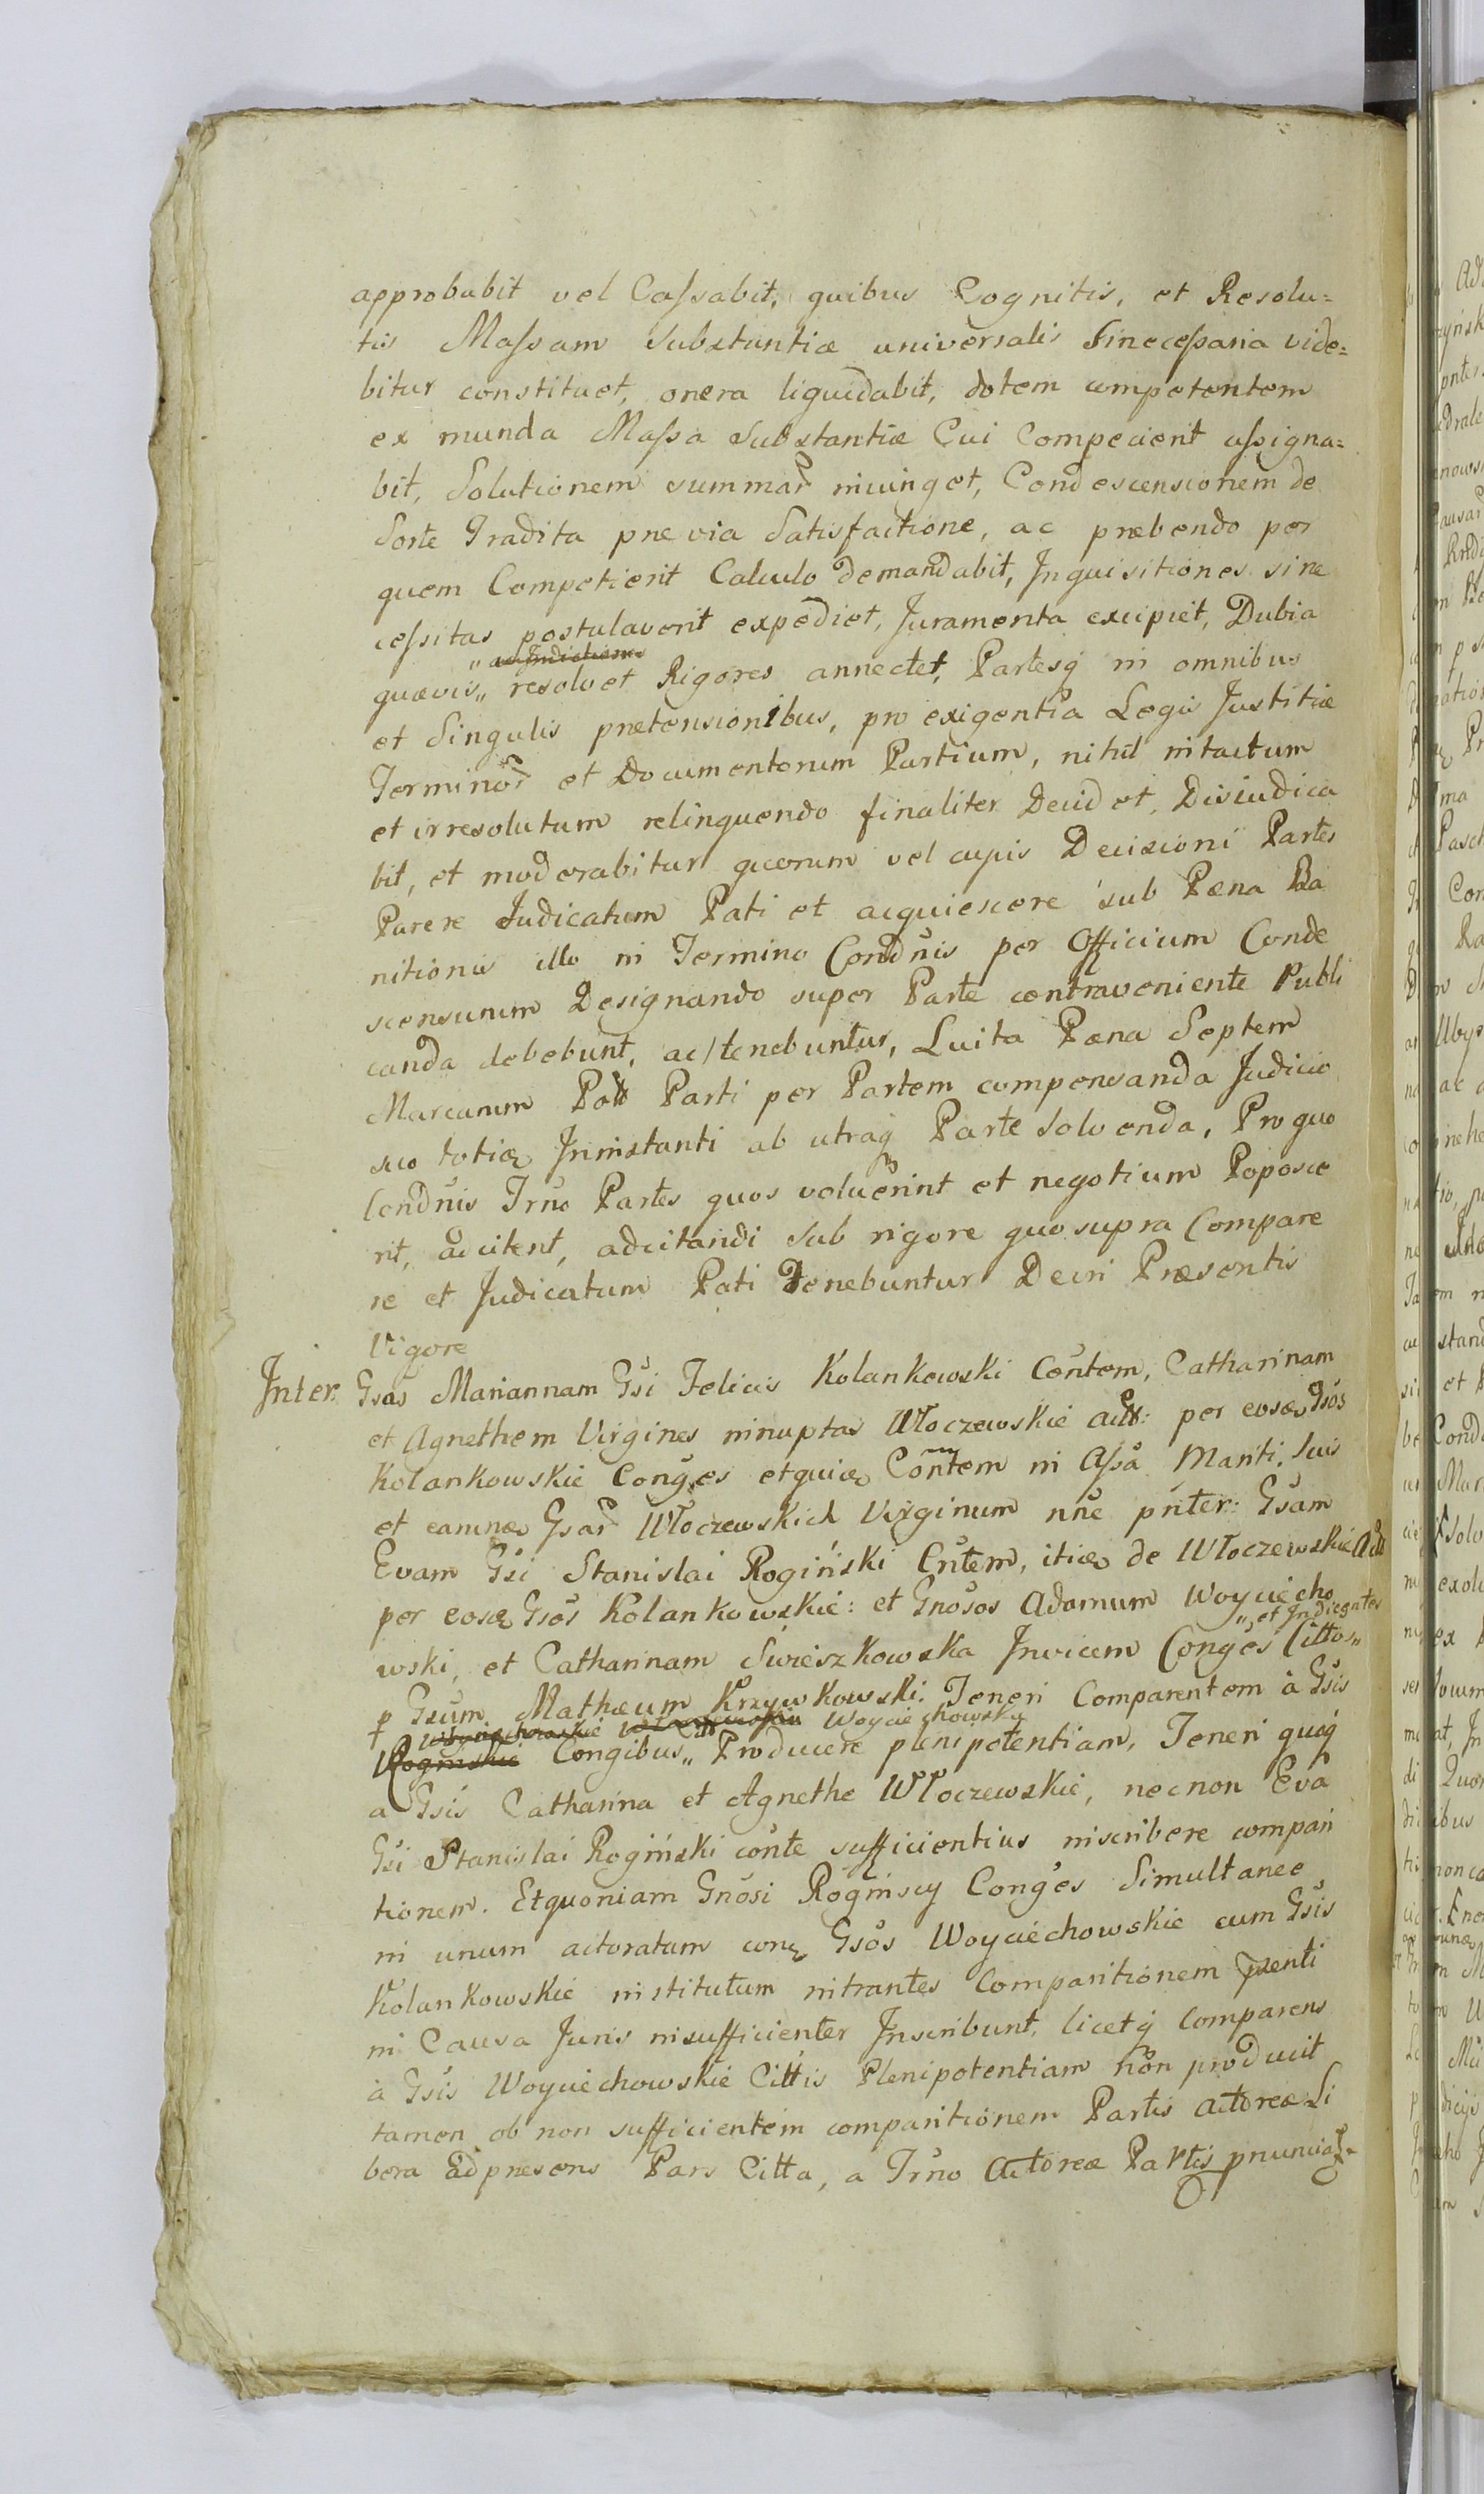 approbabit vel Caſsabit, quibus Cognitis, et Resolu=
tis Maſsam Substantiæ universalis Sineceſsaria vide=
bitur constituet, onera liquidabit, dotem competentem
ex munda Maſsa Substantiæ Cui Competierit aſsigna=
bit, Solutionem summar iniunget, Condescensionem de
Sorte Tradita prævia Satisfactione, ac præbendo per
quem Competierit Calculo demandabit, Inquisitiones sine
ceſsitas postulaverit expediet, Juramenta excipiet, Dubia
quævis„ resolvet Rigores annectet, Partesq in omnibus
et Singulis prætensionibus, pro exigentia Legis Justitiæ
Terminor et Documentorum Partium, nihil intactum
et irresolutum relinquendo finaliter Decidet, Diiudica
bit, et moderabitur quorum vel cujus Decisioni Partes
Parere Judicatum Pati et acquiescere sub Pæna Ba
nitionis illo in Termino Condnis per Officium Conde
scensurum Designando super Parte contraveniente Publi
canda debebunt, ac tenebuntur, Luita Pæna Septem
Marcarum Poll Parti per Partem compensanda Judicio
suo toties Ininstanti ab utraq Parte Solvenda, Pro quo
Condnis Trno Partes quos voluerint et negotium Poposce
rit, adcitent, adcitandi Sub rigore quo supra Compare
re et Judicatum Pati Tenebuntur Decri Præsentis
Vigore
Inter. Gsas Mariannam Gsi Felicis Kolankowski Contem, Catharinam
et Agnethem Virgines innuptas Włoczewskie act: per eosd Gsos
Kolankowskie Conges etquid Contem in Aſsa Mariti Suis
et earund Gsar Włoczewskich Virginum nne pnter: Gsam
Evam Gsi Stanislai Rogiński Cntem, itid de Włoczewskie Act
per eosd Gsos Kolankowskie: et Gnosos Adamum Woyciecho
wski, et Catharinam Swieszkowska Invicem Conges Cittos„
„et Indiegntes
p Gsum Mathæum Krzywkowski. Teneri Comparentem à Gsis
Woyciechowskie Woyciechowsky
Roginskie Congibus„ Citt Producere plenipotentiam, Teneri quoq
a Gsis Catharina et Agnethe Włoczewskie, necnon Eva
Gsi Stanislai Rogiński conte sufficientius inscribere compari
tionem. Etquoniam Gnosi Roginscy Conges Simultanee
in unum actoratum con Gsos Woyciechowskie cum Gsis
Kolankowskie institutum intrantes Comparitionem pzenti
in Causa Juris insufficienter Inscribunt, licetq Comparens
à Gsis Woyciechowskie Cittis Plenipotentiam non producit
tamen ob non sufficientem comparitionem Partis actoreæ Li
bera Ad præsens Pars Citta, a Trno Actoreæ Partis pnunciat.